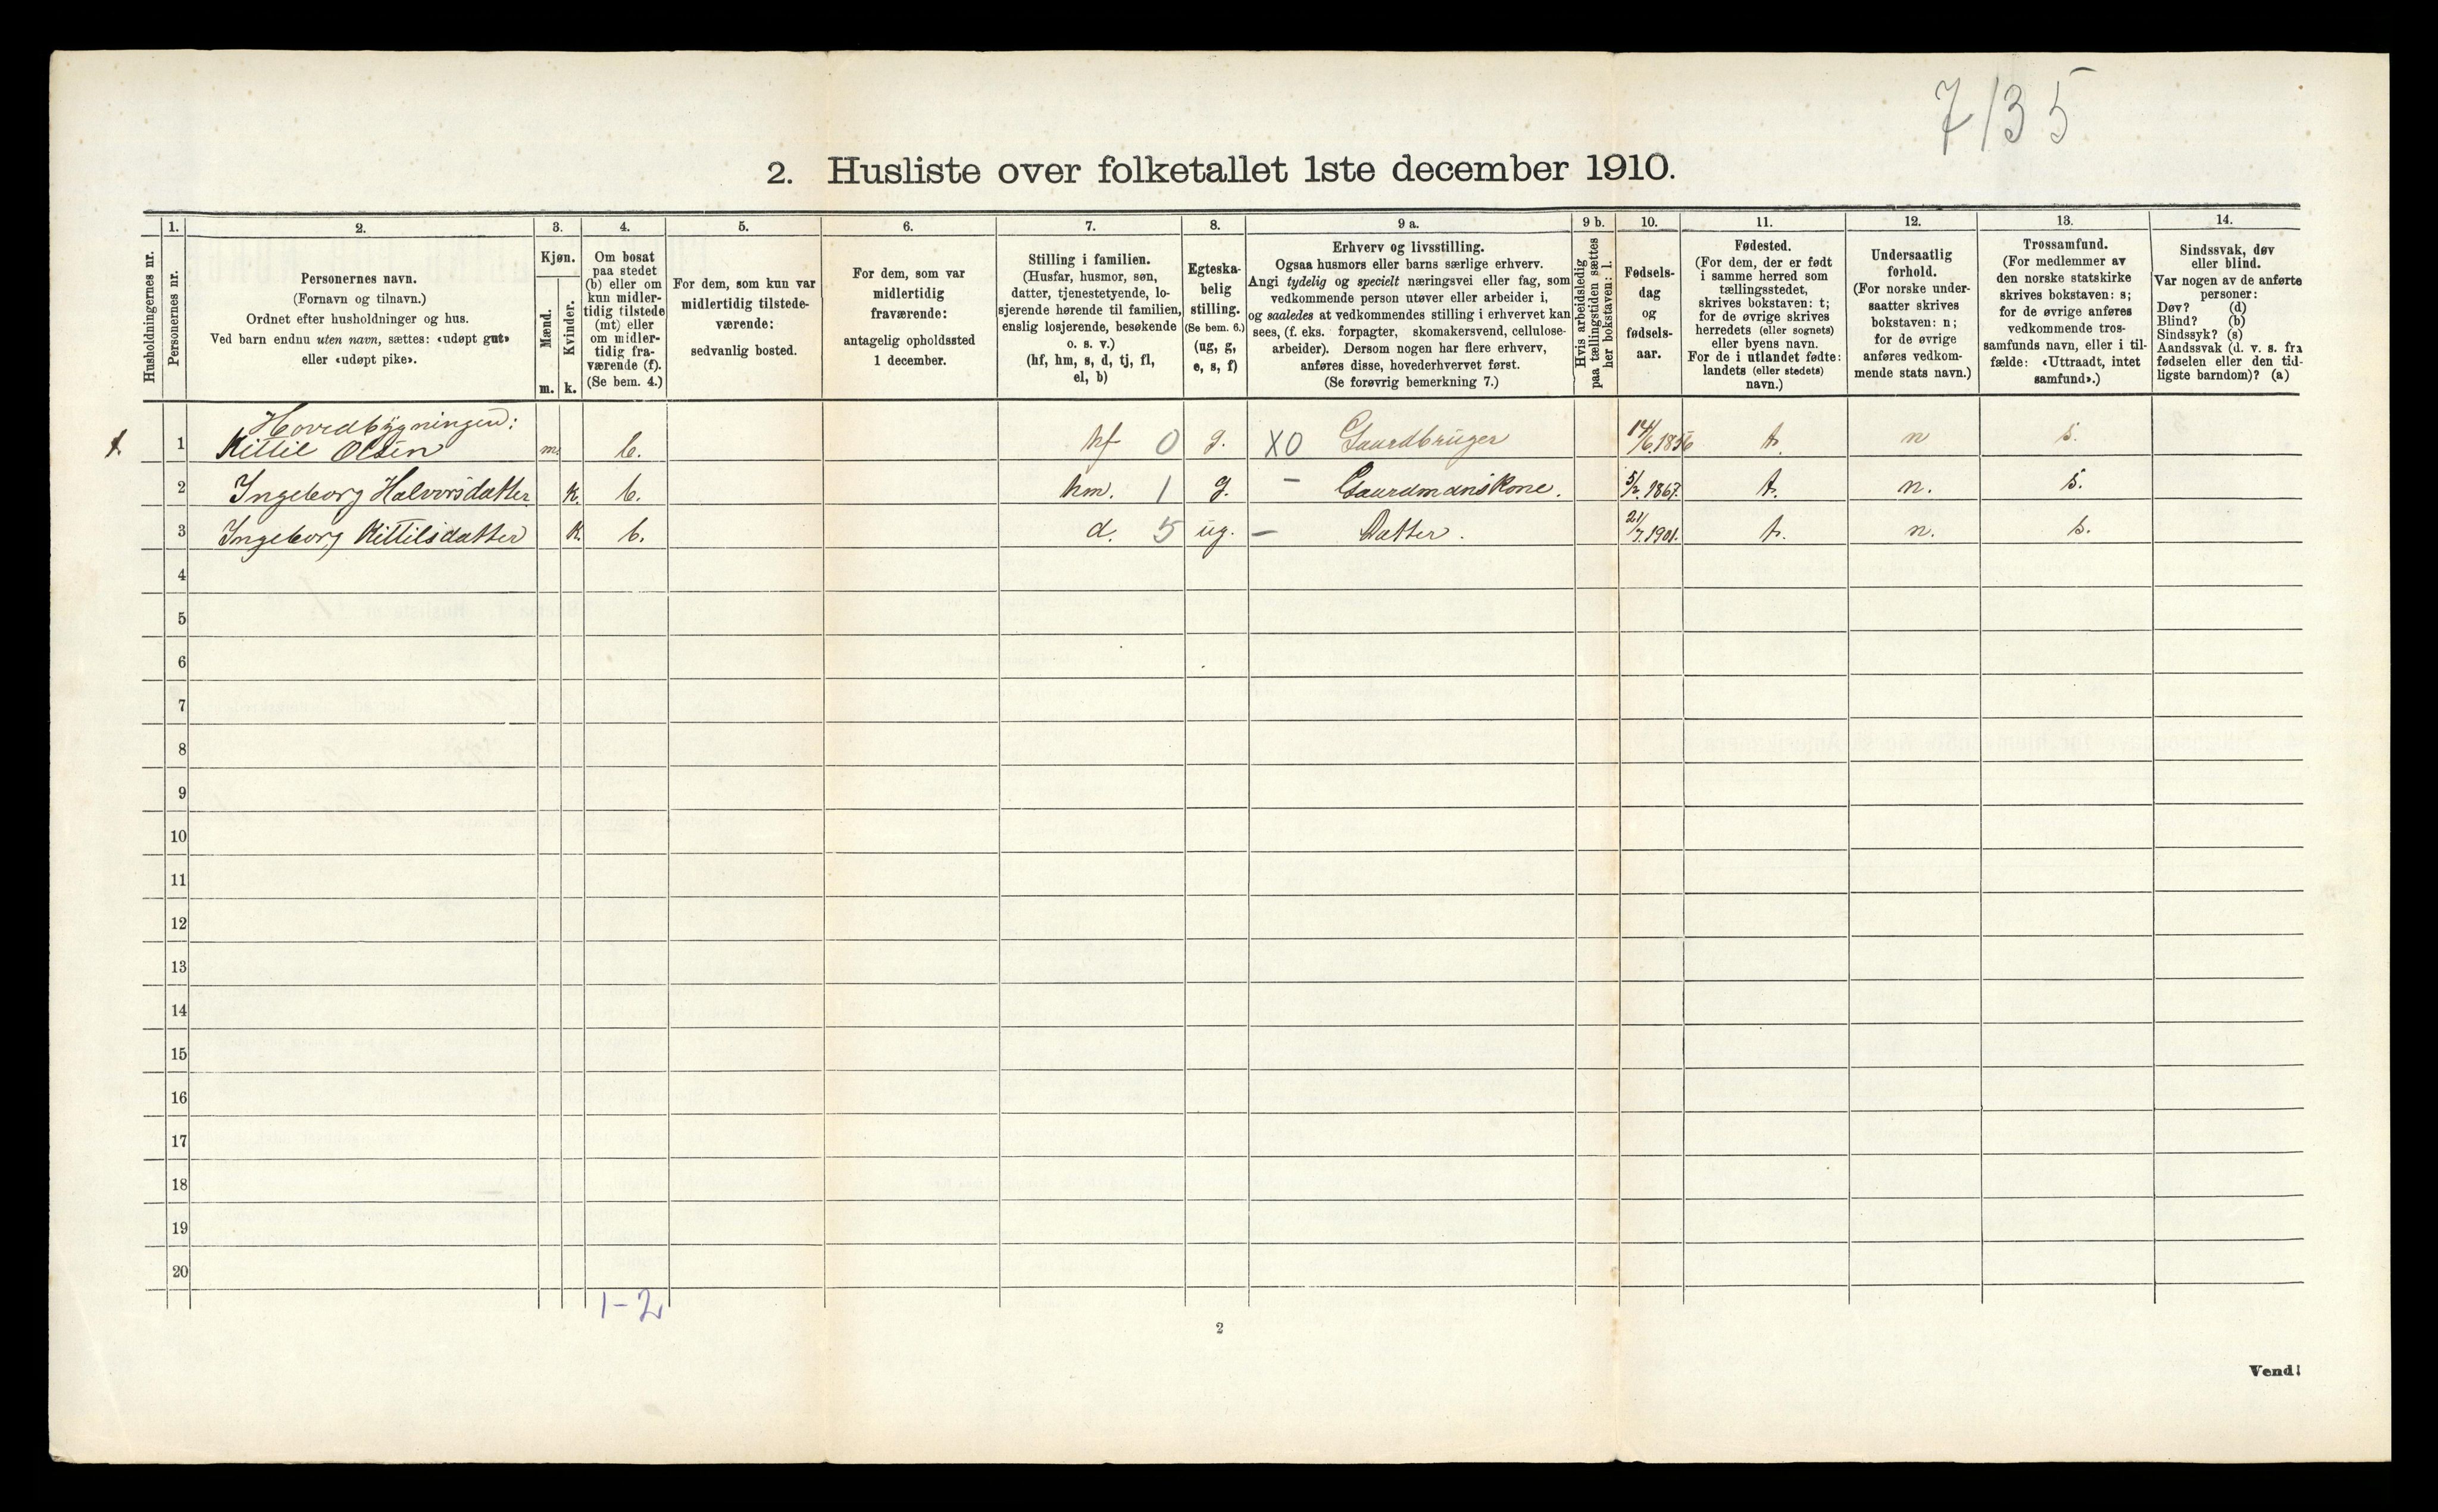 7135
2. Husliste over folketallet 1ste december 1910.
Husholdningernes nr.
1.
Personernes nr.
2.
Personernes navn.
(Fornavn og tilnavn.)
Ordnet efter husholdninger og hus.
Ved barn endnu uten navn, sættes: «udøpt gut»
eller «udøpt pike».
3.
Kjøn.
Mænd.
m.
Kvinder.
k.
4.
Om bosat
paa stedet
(b) eller om
kun midler-
tidig tilstede
(mt) eller
om midler-
tidig fra-
værende (f).
(Se bem. 4.)
5.
For dem, som kun var
midlertidig tilstede-
værende:
sedvanlig bosted.
6.
For dem, som var
midlertidig
fraværende:
antagelig opholdssted
1 december.
7.
Stilling i familien.
(Husfar, husmor, søn,
datter, tjenestetyende, lo-
sjerende hørende til familien,
enslig losjerende, besøkende
o. s. v.)
(hf, hm, s, d, tj, fl,
el, b)
8.
Egteska-
belig
stilling.
(Se bem. 6.)
(ug, g,
e, s, f)
9 a.
Erhverv og livsstilling.
Ogsaa husmors eller barns særlige erhverv.
Angi tydelig og specielt næringsvei eller fag, som
vedkommende person utøver eller arbeider i,
og saaledes at vedkommendes stilling i erhvervet kan
sees, (f. eks. forpagter, skomakersvend, cellulose-
arbeider). Dersom nogen har flere erhverv,
anføres disse, hovederhvervet først.
(Se forøvrig bemerkning 7.)
9 b.
Hvis arbeidsledig
paa tællingstiden sættes
her bokstaven: l.
10.
Fødsels-
dag
og
fødsels-
aar.
11.
Fødested.
(For dem, der er født
i samme herred som
tællingsstedet,
skrives bokstaven: t;
for de øvrige skrives
herredets (eller sognets)
eller byens navn.
For de i utlandet fødte:
landets (eller stedets)
navn.)
12.
Undersaatlig
forhold.
(For norske under-
saatter skrives
bokstaven: n;
for de øvrige
anføres vedkom-
mende stats navn.)
13.
Trossamfund.
(For medlemmer av
den norske statskirke
skrives bokstaven: s;
for de øvrige anføres
vedkommende tros-
samfunds navn, eller i til-
fælde: «Uttraadt, intet
samfund».)
14.
Sindssvak, døv
eller blind.
Var nogen av de anførte
personer:
Døv? (d)
Blind? (b)
Sindssyk? (s)
Aandssvak (d. v. s. fra
fødselen eller den tid-
ligste barndom)? (a)
Hovedbygningen:
1 Kittil Olsen m. b. hf 0 g. XO Gaardbruger 14/6 1856 t. n s.
2 Ingeborg Halvorsdatter K. b. hm. 1 g. – Gaardmandskone. 5/2 1867. t. n. s.
3 Ingeborg Kittilsdatter K. b. d. 5 ug. – Datter. 21/7 1901. t. n. s.
4
5
6
7
8
9
10
11
12
13
14
15
16
17
18
19
20
1-2
2
Vend!